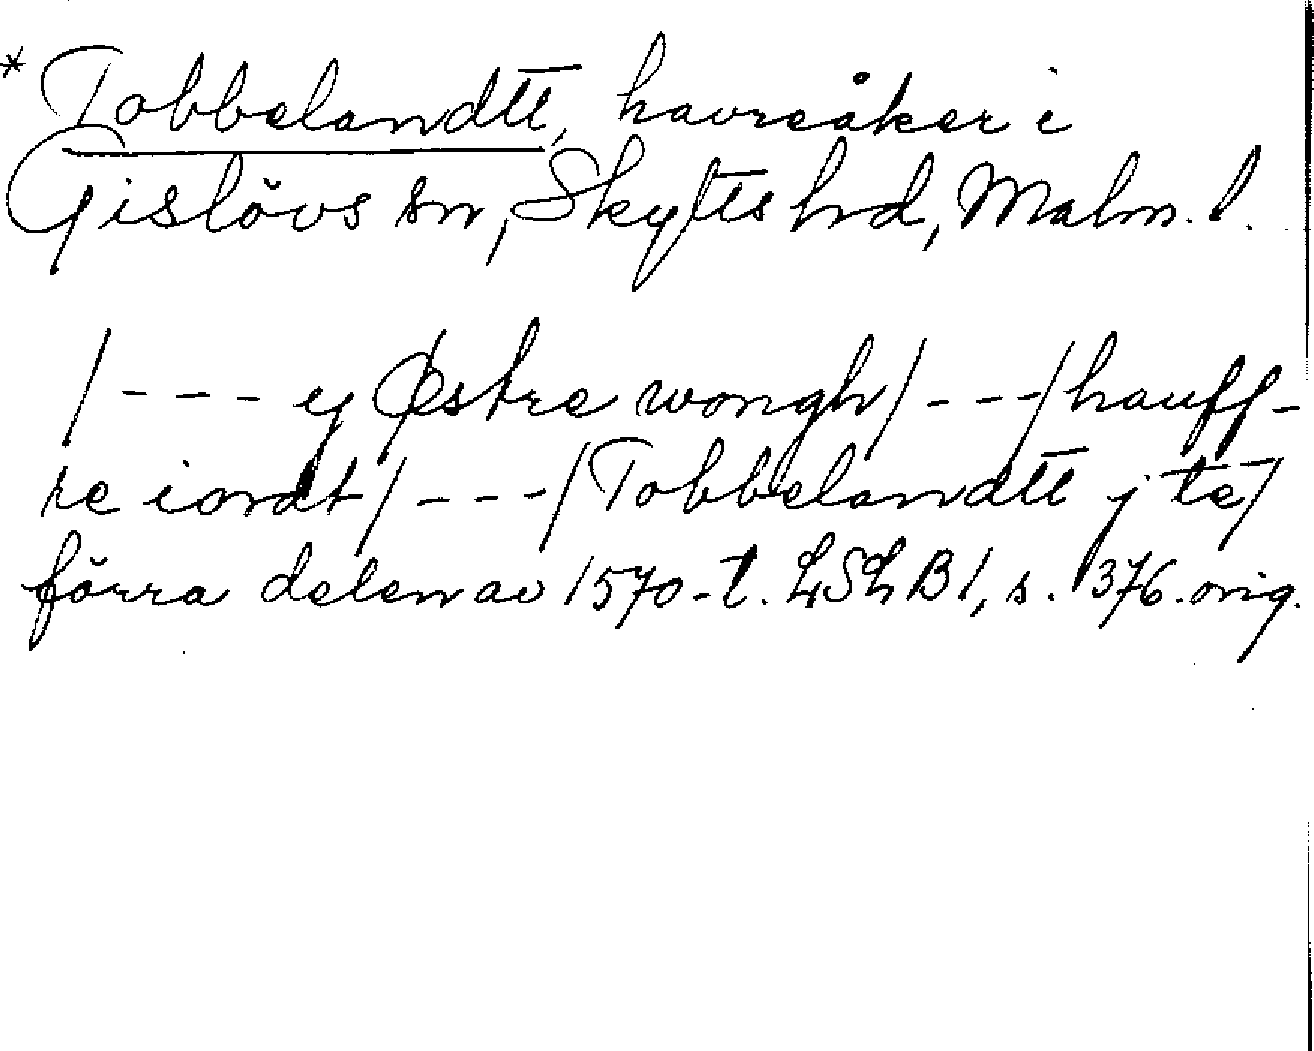 * Tobbelandtt, havreåker i
Gislövs sn, Skytts hd, Malm. l.
/--- ej Østre wongh/---/hauff-
re iordt/---/Tobbelandtt j te/
förra delen av 1570-t. LSLB1, s. 376. orig.